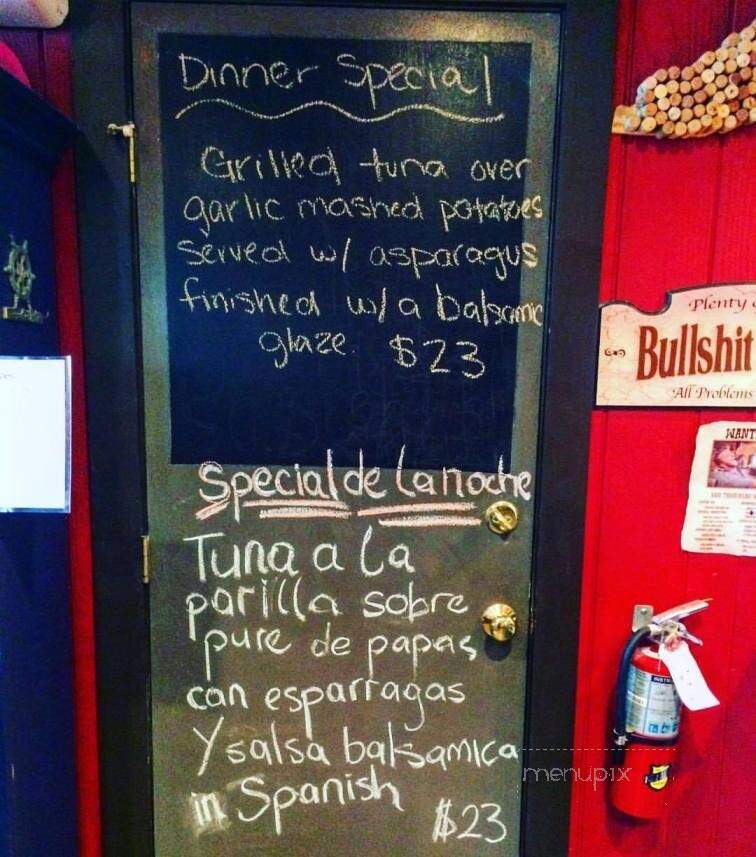 Dinner Special
Grilled tuna over
garlic mashed potatoes
served w/ asparagus
finished w/ a balsamic
glaze. $23
Special de La noche
Tuna a la
parilla sobre
pure de papas
can esparragas
Y salsa balsamica
in Spanish
$23
Plenty
Bullshit
All Problems
WANT
menupix